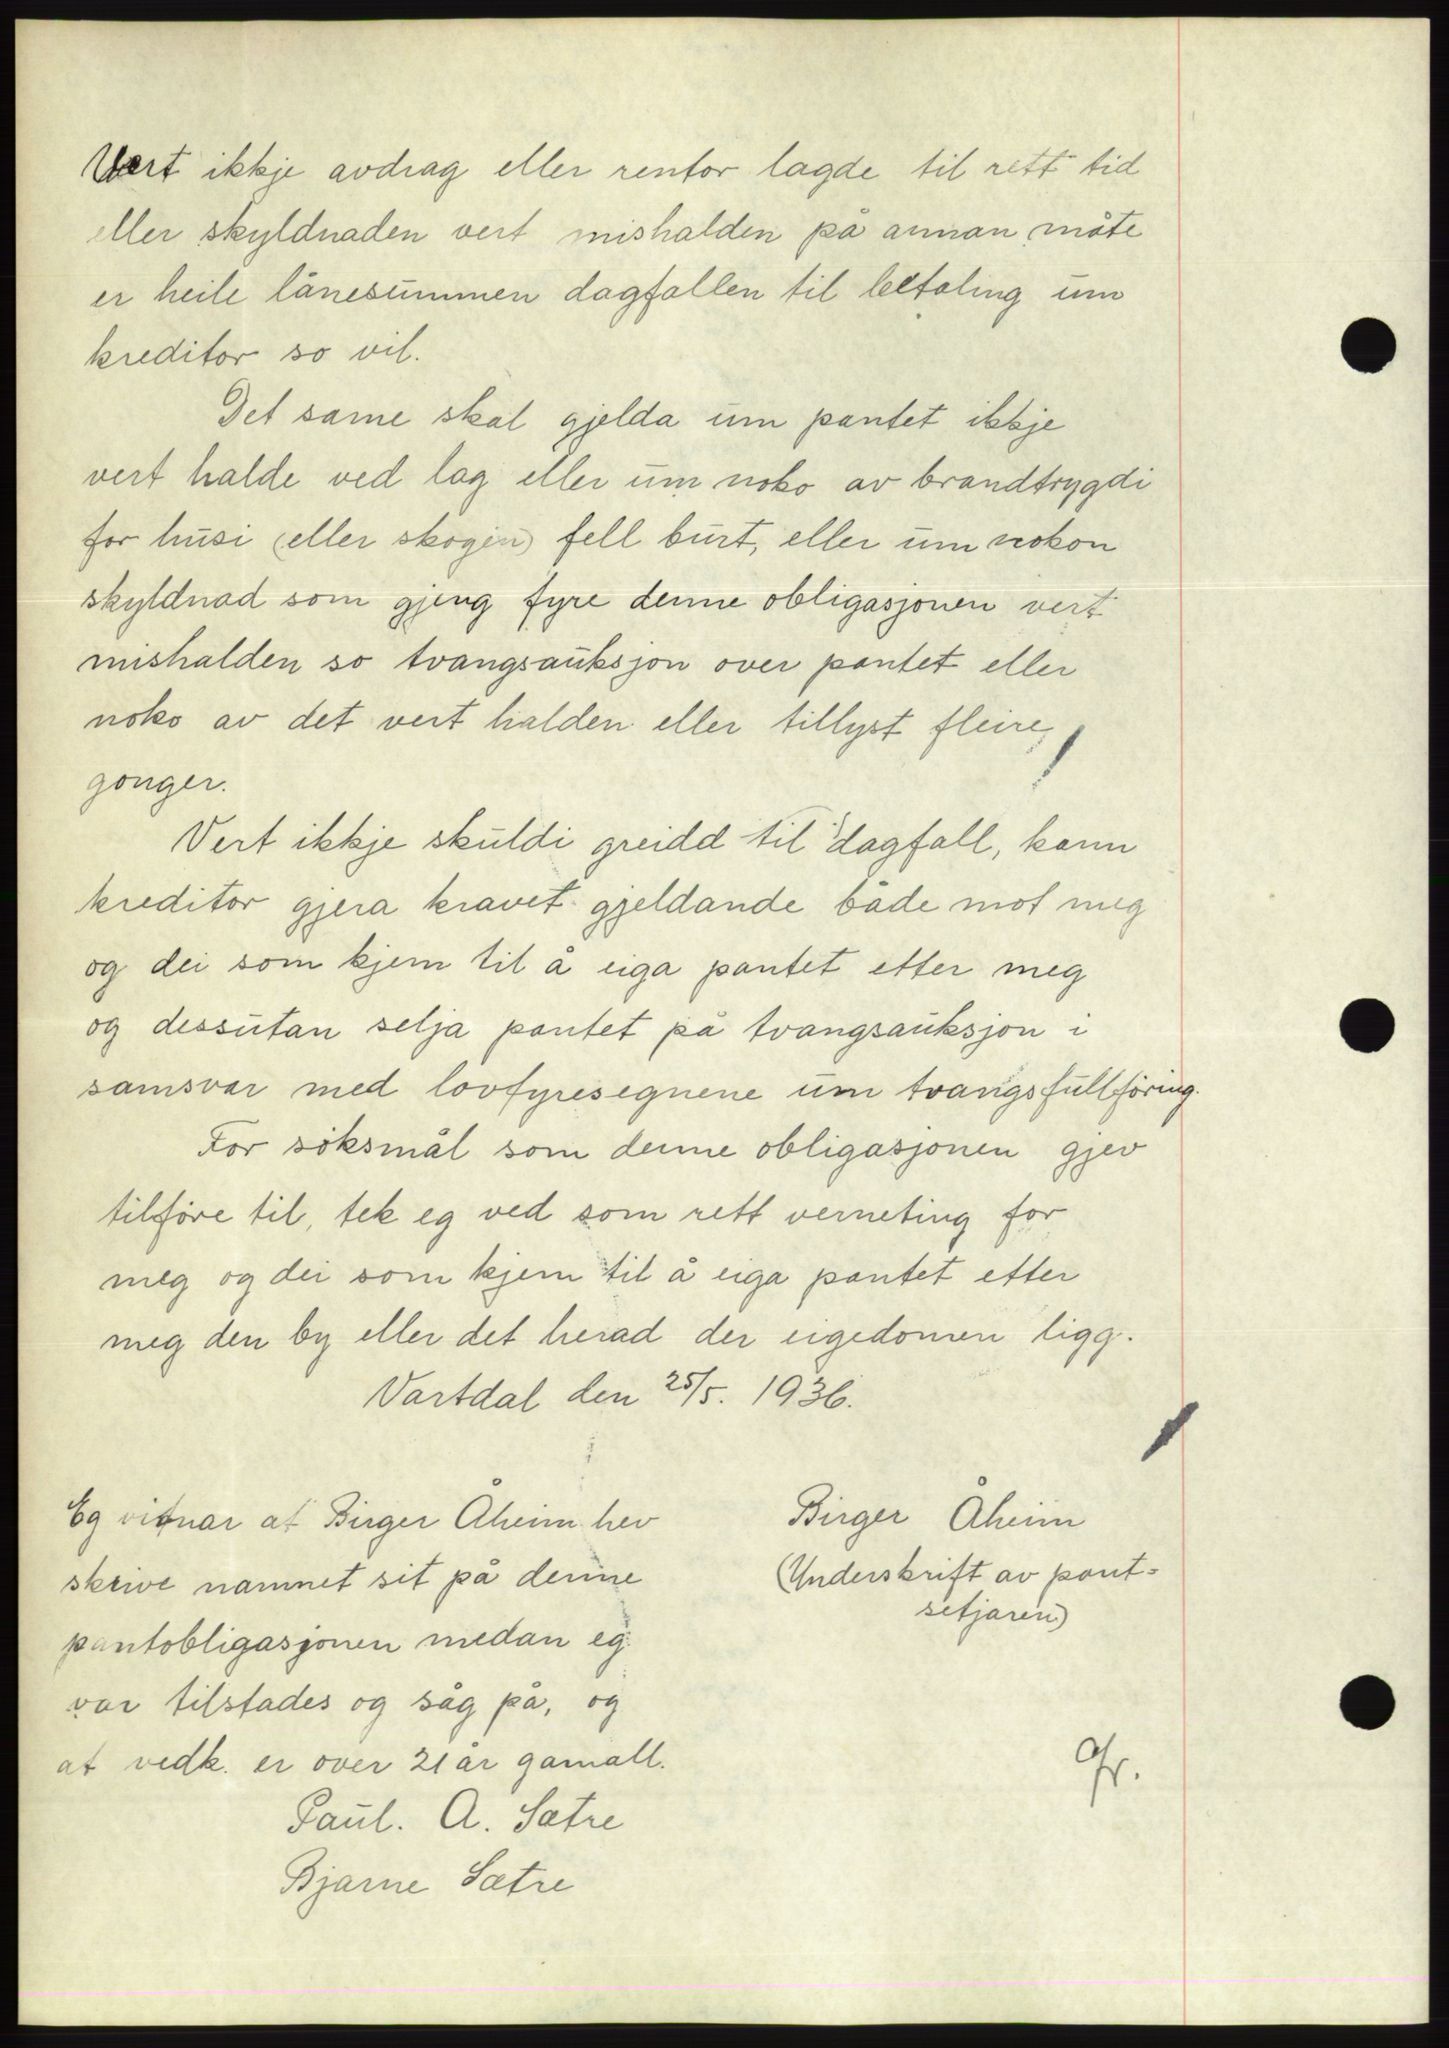 Vert ikkje avdrag eller rentor lagde til rett tid
eller skyldnaden vert mishalden på annan måte
er heile lånesummen dagfallen til betaling um
kreditor so vil.
Det same skal gjelda um pantet ikkje
vert halde ved lag eller um noko av brandtrygdi
for husi (eller skogen) fell burt, eller um nokon
skyldnad som gjeng fyre denne obligasjonen vert
mishalden so tvangsauksjon over pantet eller
noko av det vert halden eller tillyst fleire
gonger.
Vert ikkje skuldi greidd til dagfall, kann
kreditor gjera kravet gjeldande både mot meg
og dei som kjem til å eiga pantet etter meg
og dessutan selja pantet på tvangsauksjon i
samsvar med lovfyresegnene um tvangsfullföring.
For söksmål som denne obligasjonen gjev
tilföre til, tek eg ved som rett verneting for
meg og dei som kjem til å eiga pantet etter
meg den by eller det herad der eigedomen ligg.
Vartdal den 25/5. 1936.
Eg vitnar at Birger Åheim hev
skrive namnet sit på denne
pantobligasjonen medan eg
var tilstades og såg på, og
at vedk. er over 21 år gamall.
Paul. A. Sætre
Bjarne Sætre
Birger Åheim
(Underskrift av pant=
setjaren)